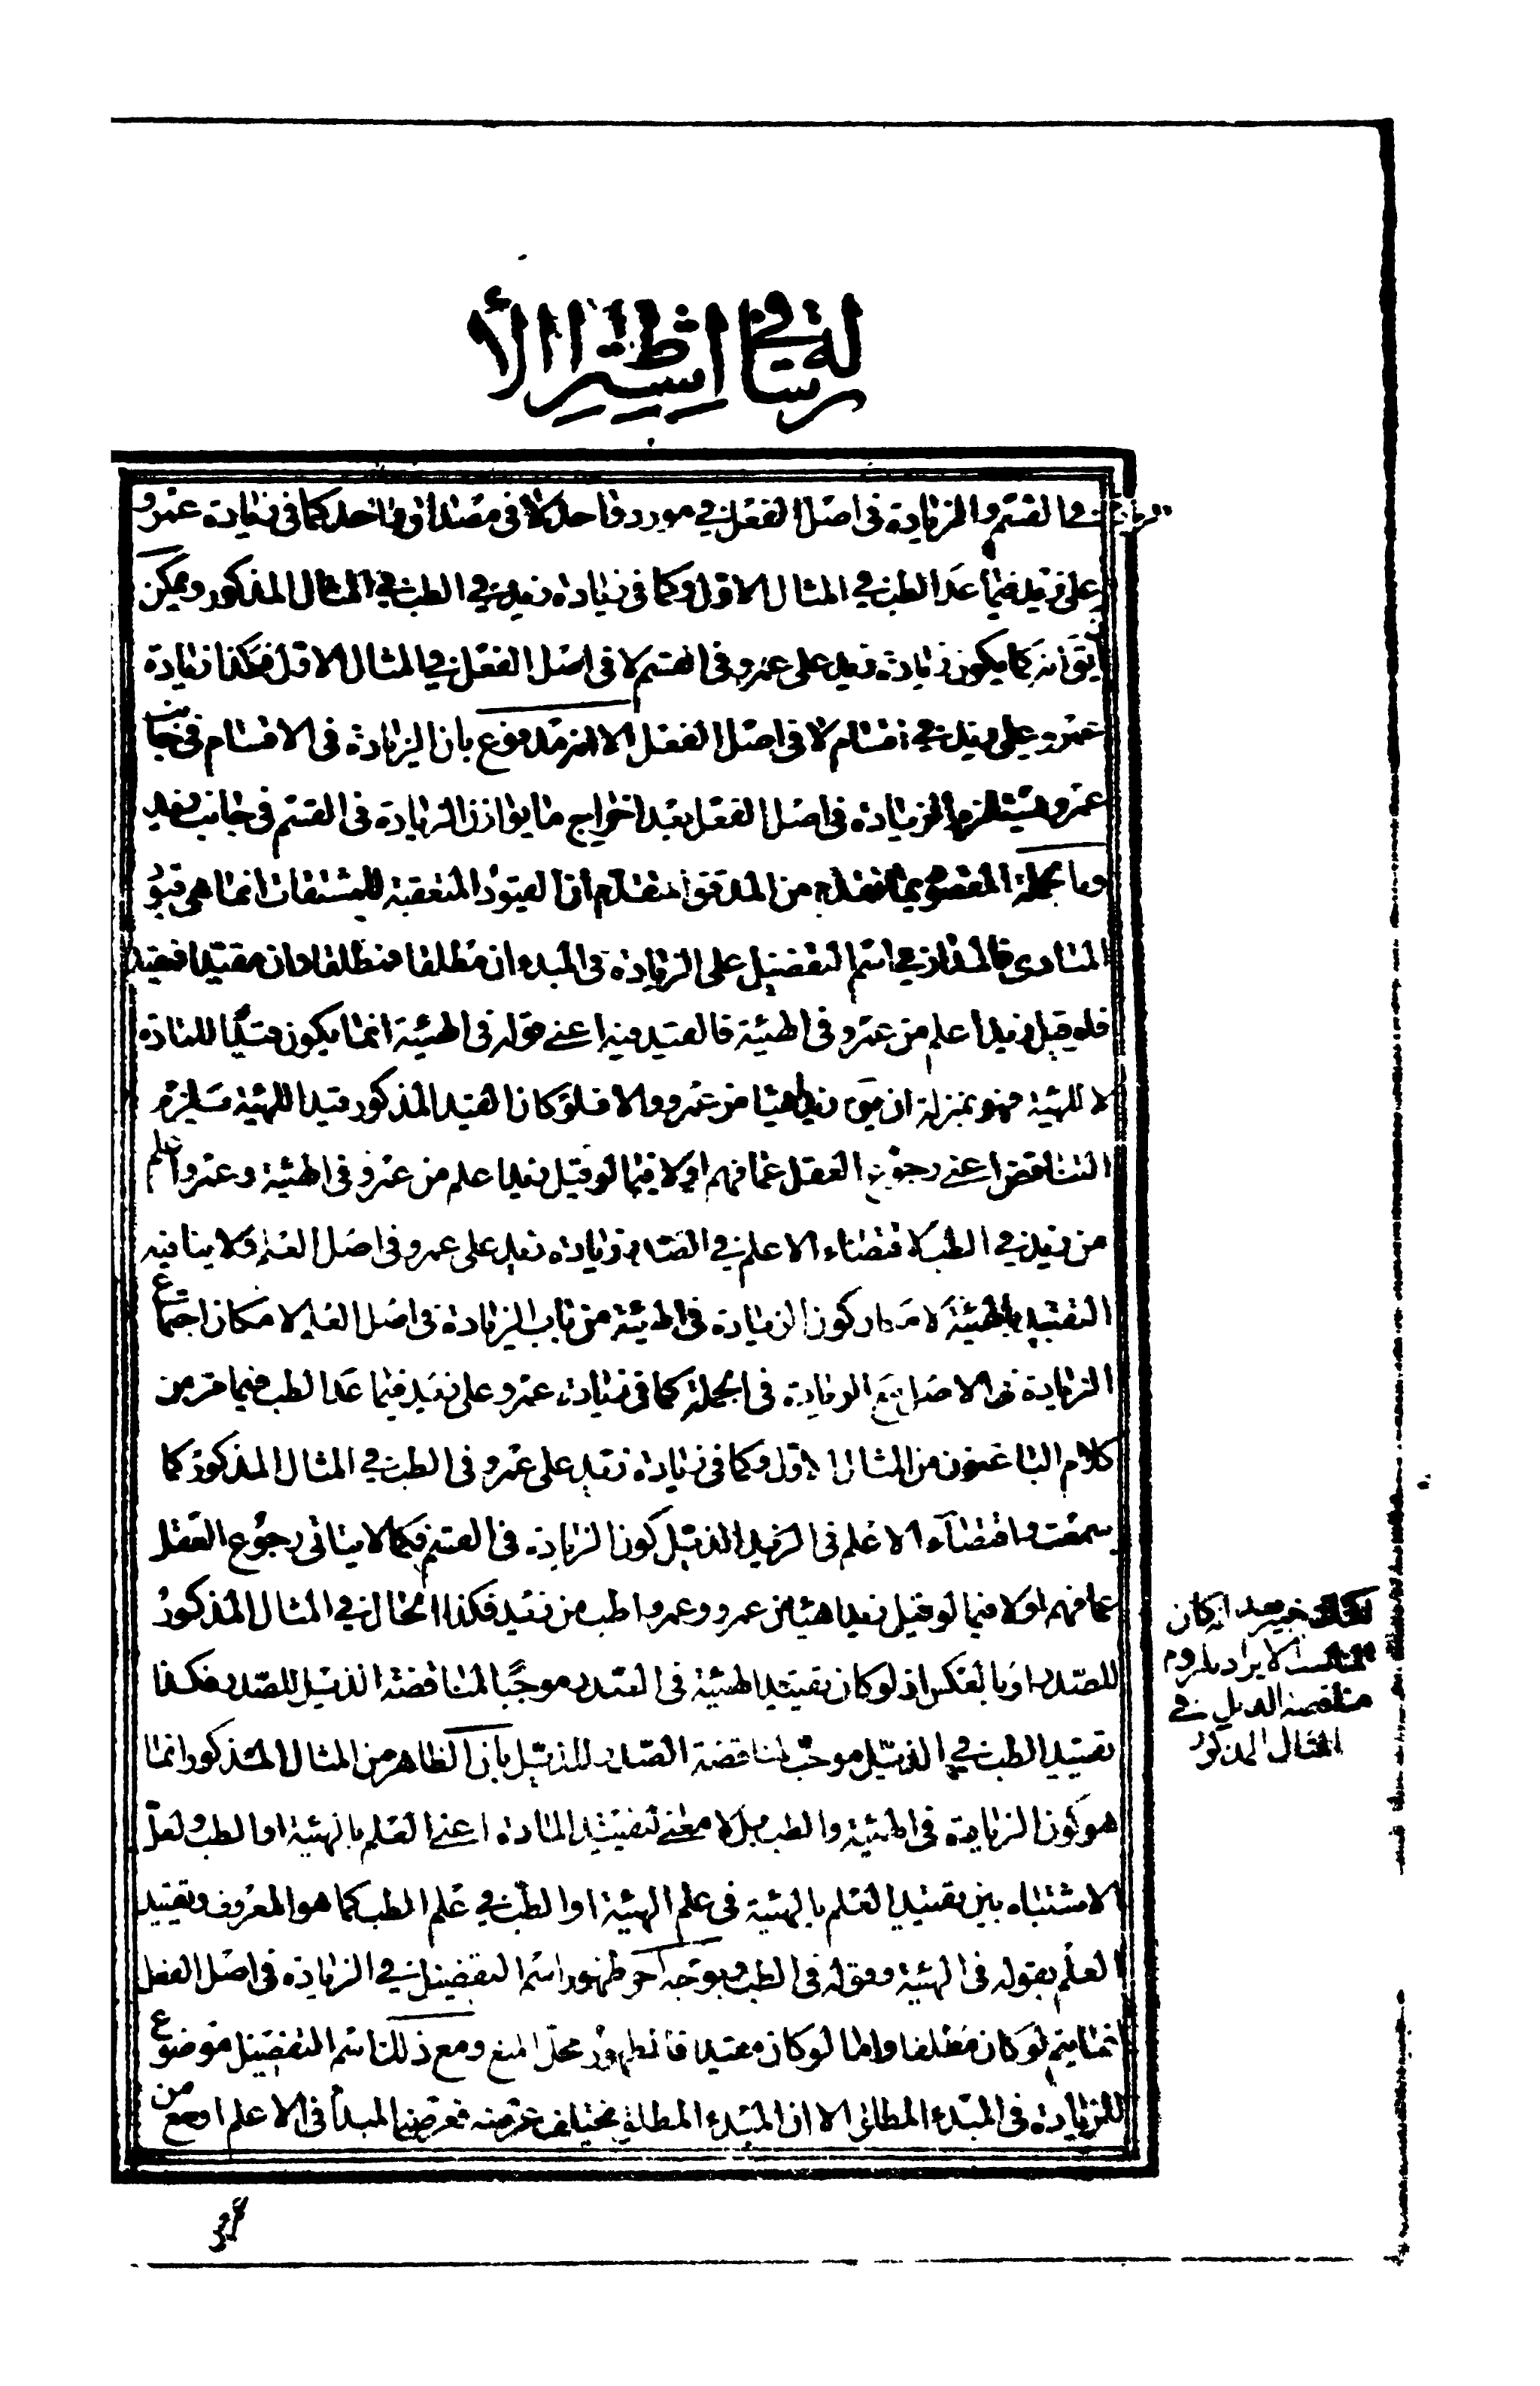 رسالة في اشتراط الأ
الزيادة في القسم والزيادة في اصل الفعل في مورد واحد لا في مصداق واحد كما في زيادة عمرو
على زيد فيما عدا الطب في المثال الاول وكما في زيادة زيد في الطب في المثال المذكور ويمكن
ان يق انه كما يكون زيادة زيد على عمرو في القسم لا في اصل الفعل في المثال الاول فكذا زيادة
عمرو على زيد في اقسام لا في اصل الفعل الا انه مدفوع بان الزيادة في الاقسام في جانب
عمرو يستلزم الزيادة في اصل الفعل بعد اخراج ما يوازن الزيادة في القسم في جانب زيد
وبالجملة المقصود من المدقق المتقدم ان القيود المتعقبة للمشتقات انما هي قيود
المبادي فالمدار في اسم التفضيل على الزيادة في المبدء ان مطلقا فمطلقا وان مقيدا فمقيد
فلو قيل زيد اعلم من عمرو في الهيئة فالقيد فيه اعني قوله في الهيئة انما يكون قيدا للمادة
لا للهيئة فهو بمنزلة ان يق زيد اهيأ من عمرو والا فلو كان القيد المذكور قيدا للهيئة فيلزم
التناقض اعني رجوع العقل عما فهم اولا فيما لو قيل زيد اعلم من عمرو في الهيئة وعمرو اعلم
من زيد في الطب لاقتضاء الاعلم في الصدر زيادة زيد على عمرو في اصل العلم ولا ينافيه
التقييد بالهيئة لا مدار كون الزيادة في الهيئة من باب الزيادة في اصل العلم لامكان اجتماع
الزيادة في الاصل مع الزيادة في الجملة كما في زيادة عمرو على زيد فيما عدا الطب فيما مر من
كلام الباغنوي من المثال الاول وكما في زيادة زيد على عمرو في الطب في المثال المذكور كما
سمعت واقتضاء الاعلم في الذيل كون الزيادة في القسم فكما لا ينافي رجوع العقل
عما فهم اولا فيما لو قيل زيد اهيأ من عمرو وعمرو اطب من زيد فكذا الحال في المثال المذكور
للصدر او بالعكس اذ لو كان تقييد الهيئة في الصدر موجبا لمناقضة الذيل للصدر فكذا
تقييد الطب في الذيل موجب لمناقضة الصدر للذيل بان الظاهر من المثال المذكور انما
هو كون الزيادة في الهيئة والطب بل لا معنى لتقييد المادة اعني العلم بالهيئة او الطب ولعل
الاشتباه بين تقييد العلم بالهيئة في علم الهيئة او الطب في علم الطب كما هو المعروف وتقييد
العلم بقوله في الهيئة وقوله في الطب وبوجه اخر ظهور اسم التفضيل في الزيادة في اصل الفعل
انما يتم لو كان مطلقا واما لو كان مقيدا فالظهور محل المنع ومع ذلك اسم التفضيل موضوع
للزيادة في المبدء المطلق الا ان المبدء المطلق يختلف عرضه فعرض المبدأ في الاعلم اوسع من
ان كان
الايراد بلزوم
مناقضة الذيل في
المثال المذكور